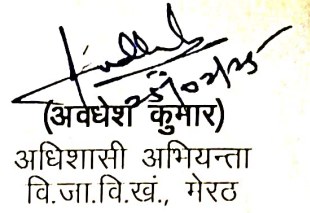 (अवधेश कुमार)
अधिशासी अभियन्ता
वि.जा.वि.खं., मेरठ